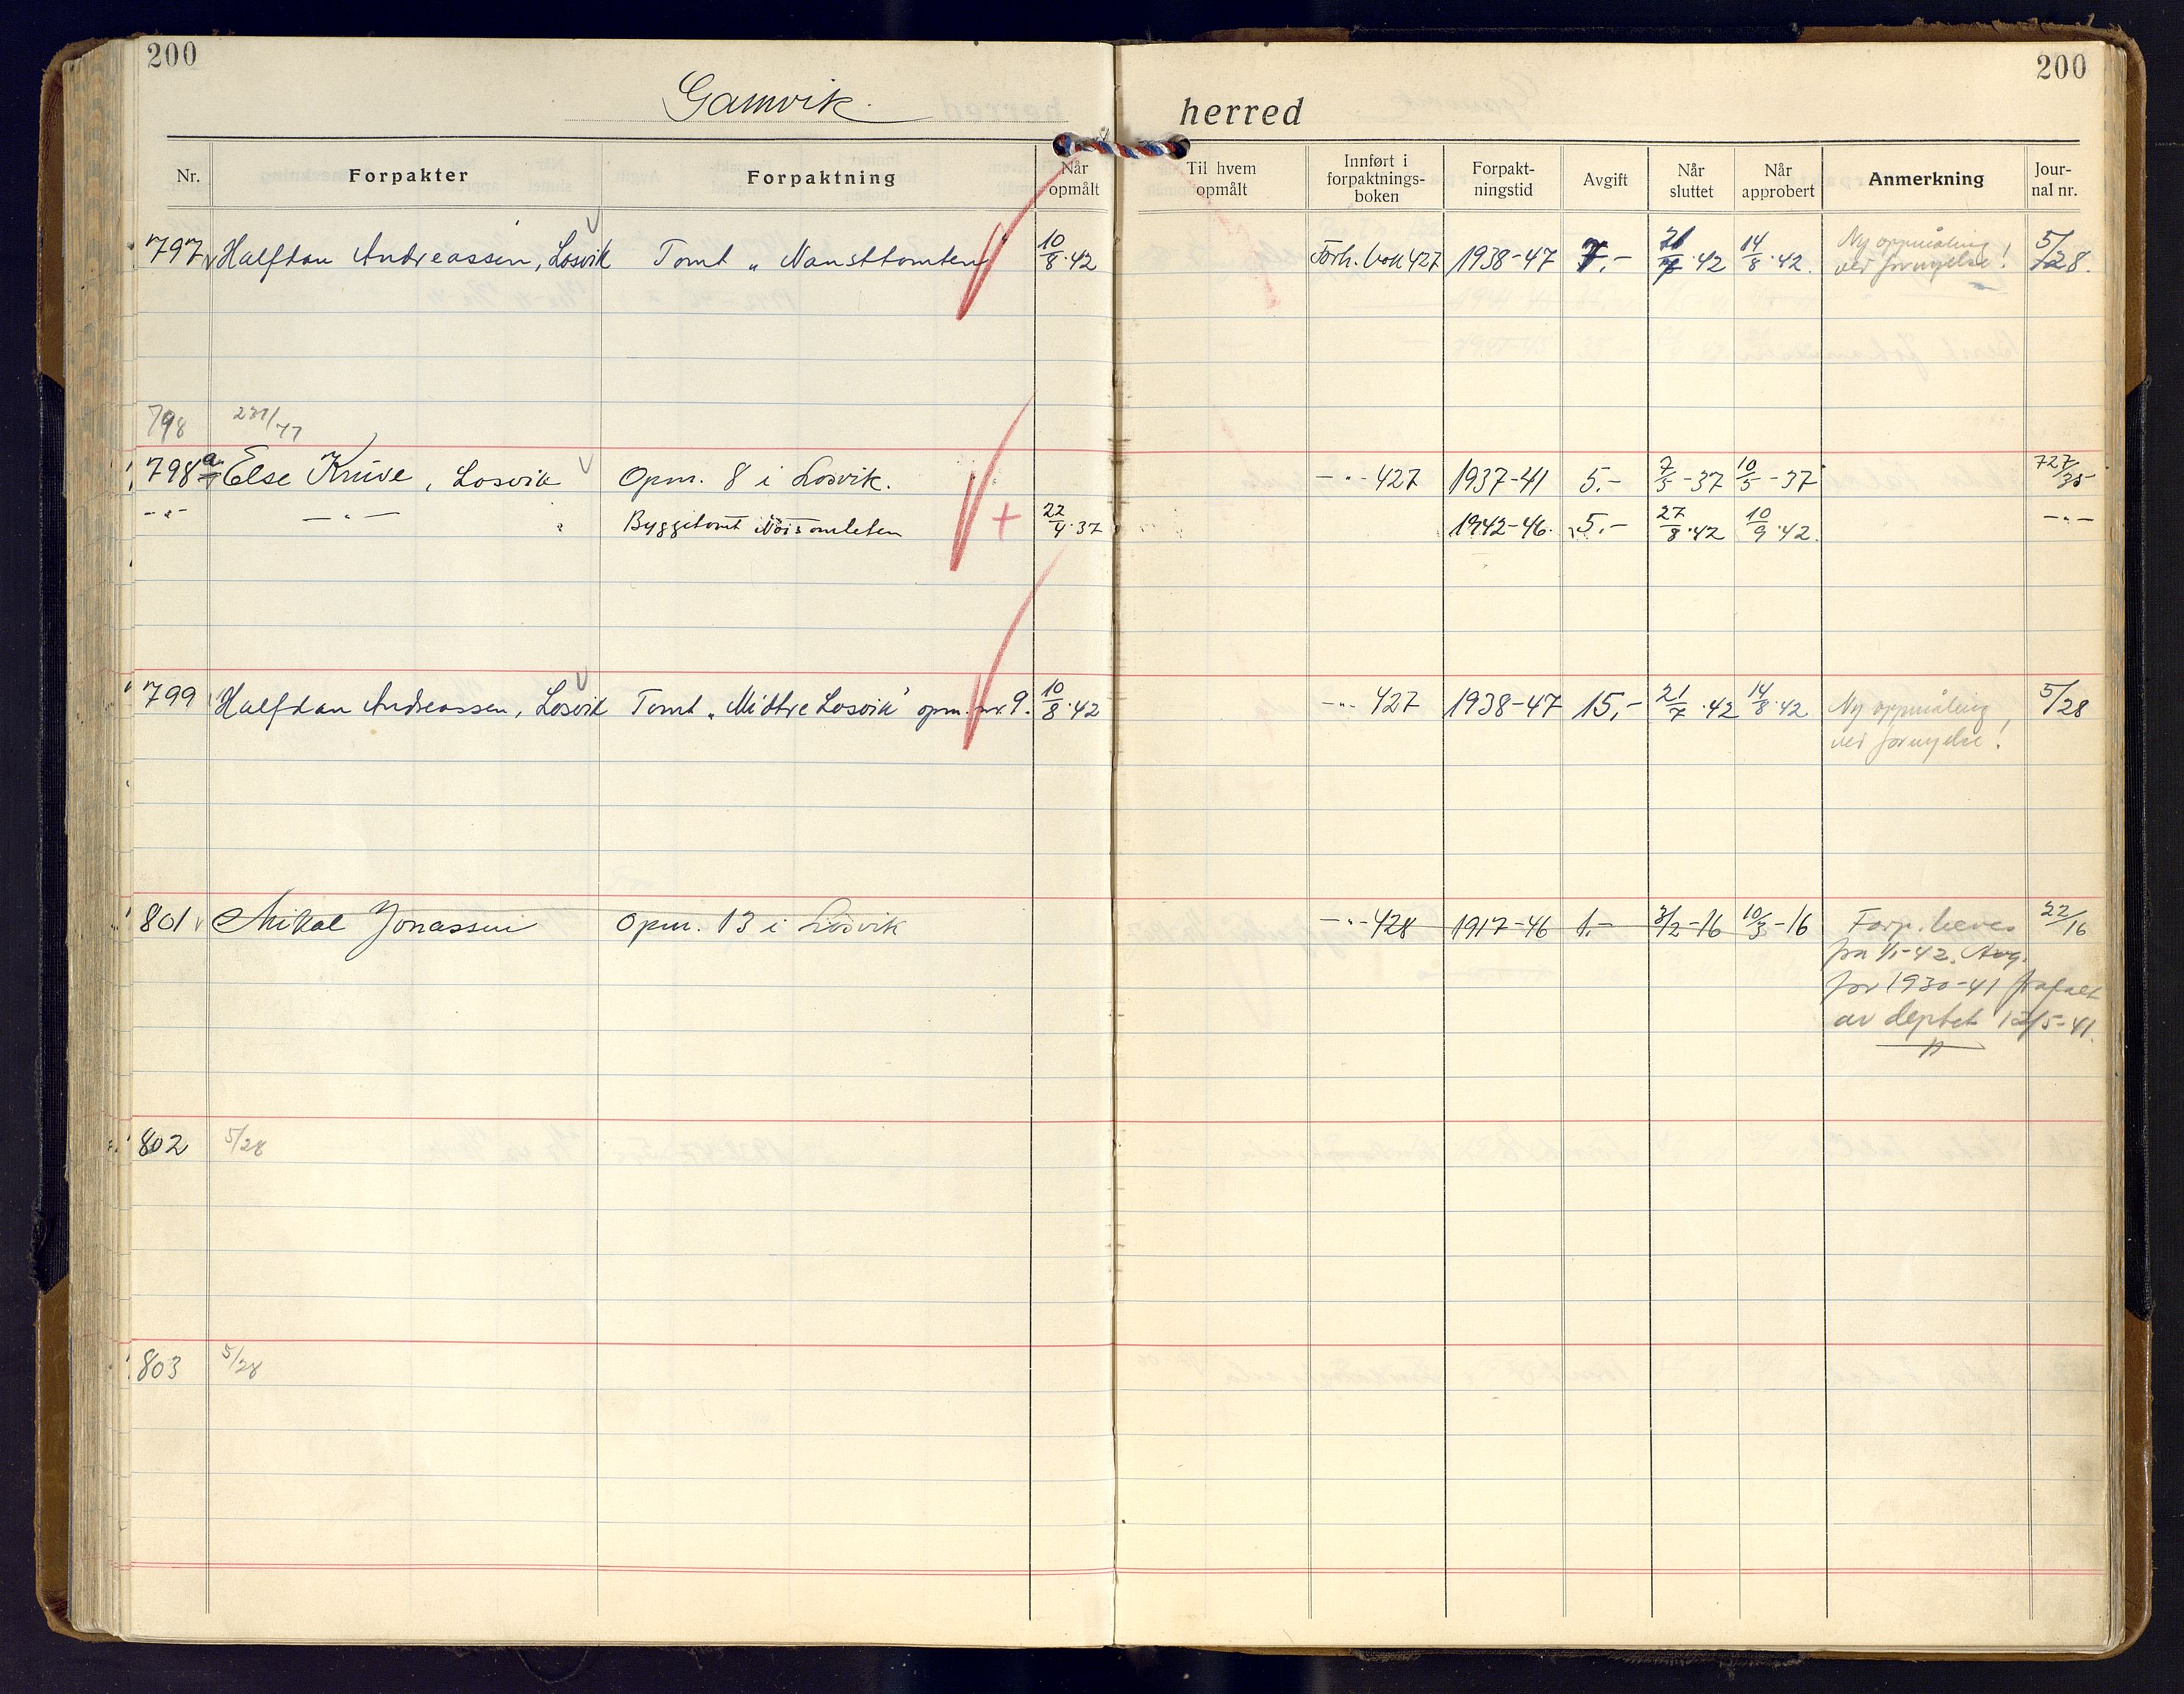 200 200
Gamvik herred
Nr. Forpakter Forpaktning Når opmålt Til hvem opmålt Innført i forpaktnings-boken Forpakt-ningstid Avgift Når sluttet Når approbert Anmerkning Jour-nal nr.
797 Halfdan Andreassen, Losvik Tomt „Nausttomten" 10/8.42 Forh. bok 427 1938-47 7.- 21/7.42 14/8.42. Ny oppmåling 5/28.
ved fornyelse!
798 231/77
798a Else Kruve, Losvik Opm. 8 i Losvik. -"- 427 1937-41 5.- 7/5-37 10/5-37 727/35
-"- -"- Byggetomt 22/4.37 1942-46. 5.- 27/8.42 10/9.42. -"-
799 Halfdan Andreassen, Losvik Tomt „Midtre Losvik" opm. nr. 9. 10/8.42 -"- 427 1938-47 15,- 21/7.42 14/8.42 Ny oppmåling 5/28
ved fornyelse!
801 Mikal Jonassen Opm. 13 i Losvik -"- 428 1917-46 1.- 3/2-16 10/3-16 Forp. heves 22/16
fra 1/1-42. Avg.
for 1930-41 frafalt
av deptet 12/5-41.
802 5/28
803 5/28